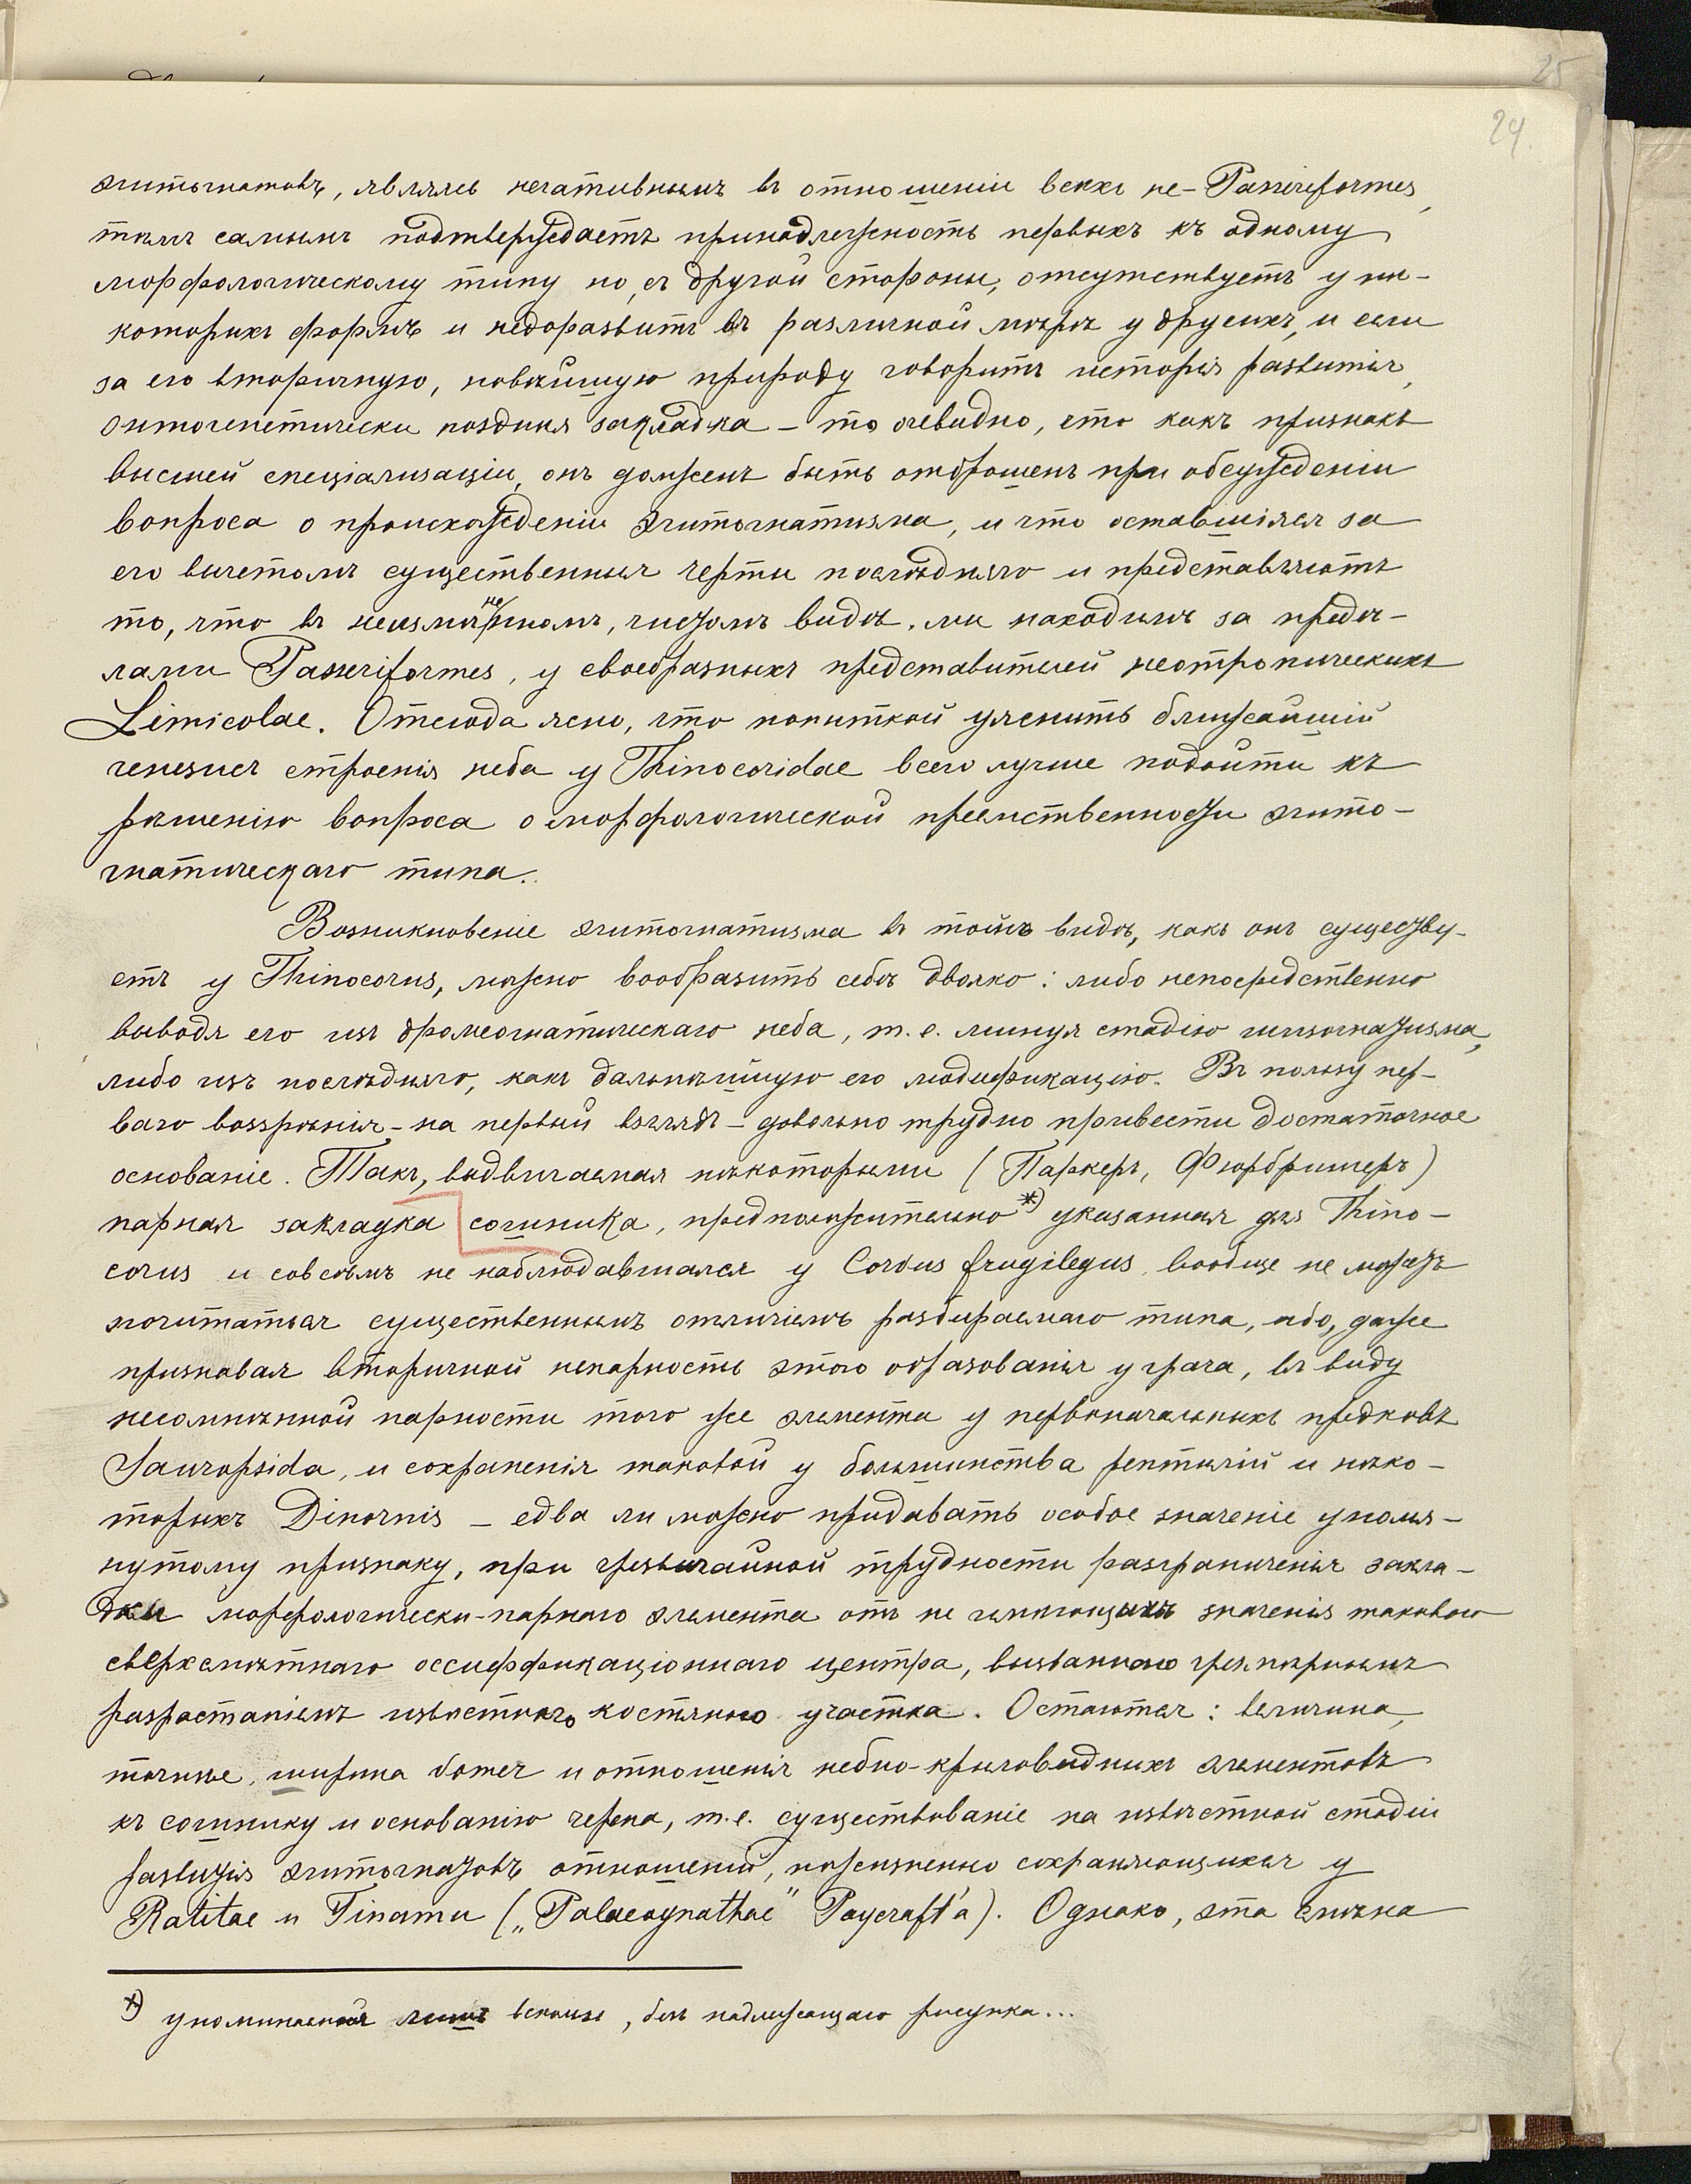 25
24.
эгитогнатовъ, являясь негативнымъ въ отношеніи всѣхъ не-Passeriformes,
тѣмъ самымъ подтверждаетъ принадлежность первыхъ къ одному
морффологическому типу но, съ другой стороны, отсутствуетъ у нѣ-
которыхъ формъ и недоразвитъ въ различной мѣрѣ у другихъ, и если
за его вторичную, новѣйшую природу говоритъ исторія развитія,
онтогенетически поздняя закладка – то очевидно, что какъ признакъ
высшей спеціализаціи, онъ долженъ быть отброшенъ при обсужденіи
вопроса о происхожденіи эгитогнатизма, и что оставшіяся за
его вычетомъ существенныя черты послѣдняго и представляютъ
то, что въ неизмѣненномъ, чистомъ видѣ, мы находимъ за предѣ-
лами Passeriformes, у своеобразныхъ представителей неотропическихъ
Limicolae. Отсюда ясно, что попыткой уяснить ближайшій
генезисъ строенія неба у Thinocoridae всего лучше подойти къ
рѣшенію вопроса о морффологической преемственности эгито-
гнатическаго типа.
Возникновеніе эгитогнатизма въ томъ видѣ, какъ онъ существу-
етъ у Thinocorus, можно вообразить себѣ двояко: либо непосредственно
выводя его изъ дромеогнатическаго неба, т.е. минуя стадію шизогнатизма,
либо изъ послѣдняго, какъ дальнѣйшую его модификацію. Въ пользу пер-
ваго воззрѣнія – на первый взглядъ – довольно трудно привести достаточное
основаніе. Такъ, выдвигаемая нѣкоторыми (Паркеръ, Фюрбрингеръ)
парная закладка сошника, предположительно *) указанная для Thino-
corus и совсѣмъ не наблюдавшаяся у Corvus frugilegus, вообще не можетъ
почитаться существеннымъ отличіемъ разбираемаго типа, ибо, даже
признавая вторичной непарность этого образованія у грача, въ виду
несомнѣнной парности того же элемента у первоначальныхъ предковъ
Sauropsida, и сохраненія таковой у большинства рептилій и нѣко-
торыхъ Dinornis – едва ли можно придавать особое значеніе упомя-
нутому признаку, при чрезвычайной трудности разграниченія закла-
дки морффологически-парнаго элемента отъ не имѣющихъ значенія таковаго
сверхсмѣтнаго оссиффикаціоннаго центра, вызваннаго чрезмѣрнымъ
разрастаніемъ извѣстнаго костяного участка. Остаются: величина,
точнѣе, ширина vomer и отношенія небно-крыловидныхъ элементовъ
къ сошнику и основанію черепа, т.е. существованіе на извѣстной стадіи
развитія эгитогнатовъ отношеній, пожизненно сохраняющихся у
Ratitae и Tinamu („Palaeognathae" Pycraft'a). Однако, эта смѣна
*) упоминаемая лишь вскользь, безъ надлежащаго рисунка...